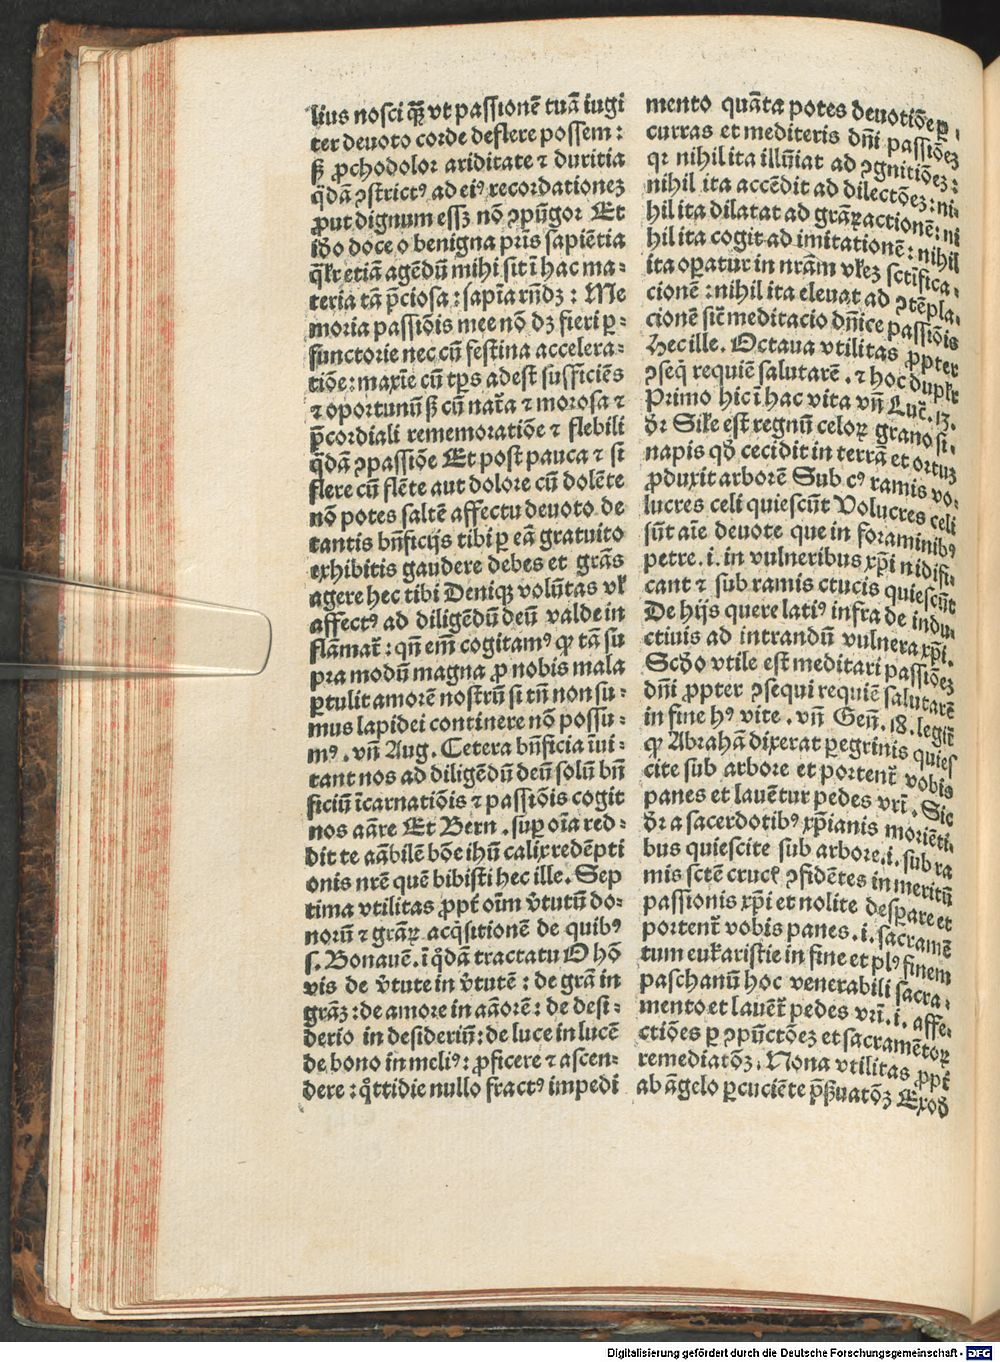 lius nosci qꝫ vt passionē tuā iugi
ter deuoto corde deflere possem:
sꝫ ꝓchodolor ariditate ⁊ duritia
q̄dā ꝯstrictꝰ ad eiꝰ recordationez
ꝓut dignum essꝫ nō ꝯpūgor Et
iđo doce o benigna pr̄is sapiētia
q̄lr̄ etiā agēdū mihi sit ī hac ma-
teria tā p̄ciosa: sapīa rn̄dꝫ: Me
moria passiōis mee nō dꝫ fieri ꝑ-
functorie nec cū festina accelera-
tiōe: maxīe cū tp̄s adest sufficiēs
⁊ oportunū sꝫ cū nat̄a ⁊ morosa ⁊
p̄cordiali rememoratiōe ⁊ flebili
q̄dā ꝯpassiōe Et post pauca ⁊ si
flere cū flēte aut dolore cū dolēte
nō potes saltē affectu deuoto de
tantis bn̄ficijs tibi ꝑ eā gratuito
exhibitis gaudere debes et gr̄as
agere hec tibi Deniqꝫ volūtas vl̄
affectꝰ ad diligēdū deū valde in
flāmat̄: qn̄ em̄ cogitamꝰ ꝙ tā su
pra modū magna ꝓ nobis mala
ꝑtulit amorē nostrū si tn̄ non su-
mus lapidei continere nō possu-
mꝰ. vn̄ Aug. Cetera bn̄ficia īui-
tant nos ad diligēdū deū solū bn̄
ficiū īcarnatiōis ⁊ passiōis cogit
nos am̄are Et Bern. suꝑ oīa red-
dit te am̄abilē bōe ihū calix redēpti
onis nr̄e quē bibisti hec ille. Sep
tima vtilitas ꝓpt̄ oīm v̄tutū do-
norū ⁊ gr̄aꝝ acq̄sitionē de quibꝰ
s. Bonauē. ī q̄dā tractatu O hō
vis de v̄tute in v̄tutē: de grā in
gr̄aꝫ: de amore in am̄orē: de desi-
derio in desideriū: de luce in lucē
de bono in meliꝰ: ꝓficere ⁊ ascen-
dere: q̄ttidie nullo fractꝰ impedi
mento quāta potes deuotiōe ꝑ
curras et mediteris dn̄i passiōez
qꝛ nihil ita illūiat ad ꝯgnitiōez:
nihil ita accēdit ad dilectōez: ni-
hil ita dilatat ad gr̄aꝝactionē: ni
hil ita cogit ad imitationē: nihil
ita oꝑatur in nr̄am vl̄ez sctīfica-
cionē: nihil ita eleuat ad ꝯtēpla-
cionē sic̄ meditacio dn̄ice passiōis
Hec ille. Octaua vtilitas ꝓpter
ꝯseq̄ requiē salutarē. ⁊ hoc dupl̄r
Primo hic ī hac vita vn̄ Luc̄. 13.
đr Sil̄e est regnū celoꝝ grano si-
napis qđ cecidit in terrā et ortuꝫ
ꝓduxit arborē Sub cꝰ ramis vo-
lucres celi quiescūt Volucres celi
sūt aīe deuote que in foraminibꝰ
petre. i. in vulneribus xp̄i nidifi-
cant ⁊ sub ramis ctucis quiescūt
De hijs quere latiꝰ infra de indu-
ctiuis ad intrandū vulnera xp̄i.
Scđo vtile est meditari passiōez
dn̄i ꝓpter ꝯsequi requiē salutarē
in fine hꝰ vite. vn̄ Gen̄. 18. legit̄
ꝙ Abrahā dixerat ꝑegrinis quies
cite sub arbore et portent̄ vobis
panes et lauētur pedes vr̄i. Sic
đr a sacerdotibꝰ xp̄ianis moriēti-
bus quiescite sub arbore. i. sub ra
mis sctē crucꝭ ꝯfidētes in meritū
passionis xp̄i et nolite desꝑare et
portent̄ vobis panes. i. sacramē
tum euk̄aristie in fine et plꝰ finem
paschanū hoc venerabili sacra-
mento et lauēt̄ pedes vr̄i. i. affe-
ctiōes ꝑ ꝯpūctōez et sacramētoꝝ
remediatōꝫ. Nona vtilitas ꝓpt̄
ab āgelo ꝑcuciēte p̄ẜuatōꝫ Exođ
Digitalisierung gefördert durch die Deutsche Forschungsgemeinschaft - DFG